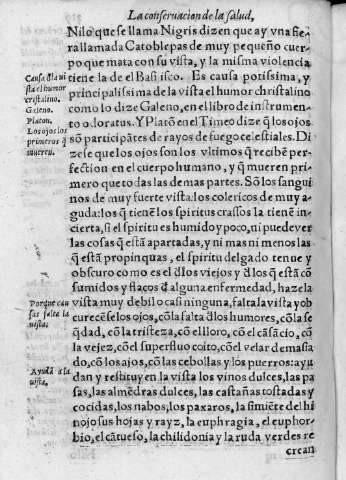 La conseruacion de la salud,
Nilo que se llama Nigris dizen que ay vna fie-
ra llamada Catoblepas de muy pequeño cuer-
po que mata con su vista, y la misma violencia
tiene la de el Basilisco. Es causa potissima, y
principalissima de la vista el humor christalino
como lo dize Galeno, en el libro de instrumen-
to odoratus. Y Platõ en el Timeo dize q̃ los ojos
son participãtes de rayos de fuego celestiales. Di
zese que los ojos son los vltimos q̃ recibẽ per-
fection en el cuerpo humano, y q̃ mueren pri-
mero que todas las demas partes. Sõ los sangui
nos de muy fuerte vista: los colericos de muy a-
guda: los q̃ tienẽ los spiritus crassos la tienẽ in-
cierta, si el spiritu es humido y poco, ni puede ver
las cosas q̃ está apartadas, y ni mas ni menos las
q̃ està propinquas, el spiritu delgado tenue y
obscuro como es el d̃los viejos y d̃los q̃ està cõ
sumidos y flacos d̃ alguna enfermedad, haze la
vista muy debil o casi ninguna, falta la vista y ob
curecẽse los ojos, cõ la falta d̃ los humores, cõ la se
q̃dad, cõ la tristeza, cõ el lloro, cõ el cãsãcio, cõ
la vejez, cõ el superfluo coito, cõ el velar demasia
do, cõ los ajos, cõ las cebollas y los puerros: ayu
dan y restituyen la vista los vinos dulces, las pa
sas, las almẽdras dulces, las castañas tostadas y
cocidas, los nabos, los paxaros, la simiẽte del hi
nojo sus hojas y rayz, la euphragia, el euphor-
bio, el cãtueso, la chilidonia y la ruda verdes re
crean
Causa d̃ la vi
sta el humor
cristalino.
Galeno.
Platon.
Los ojos los
primeros q̃
mueren.
Porque cau
sas falta la
vista.
Ayuda a la
vista.